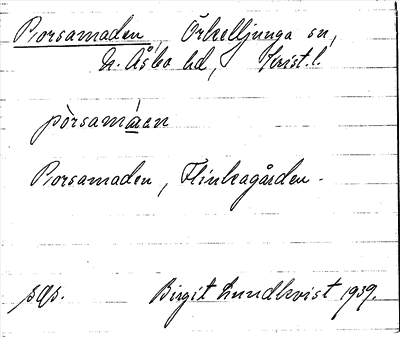 Porsamaden Örkelljunga sn,
N. Åsbo hd, Krist. l.
pòrsamáan
Porsamaden, Flinkagården.
sgs. Birgit Lundkvist 1939.